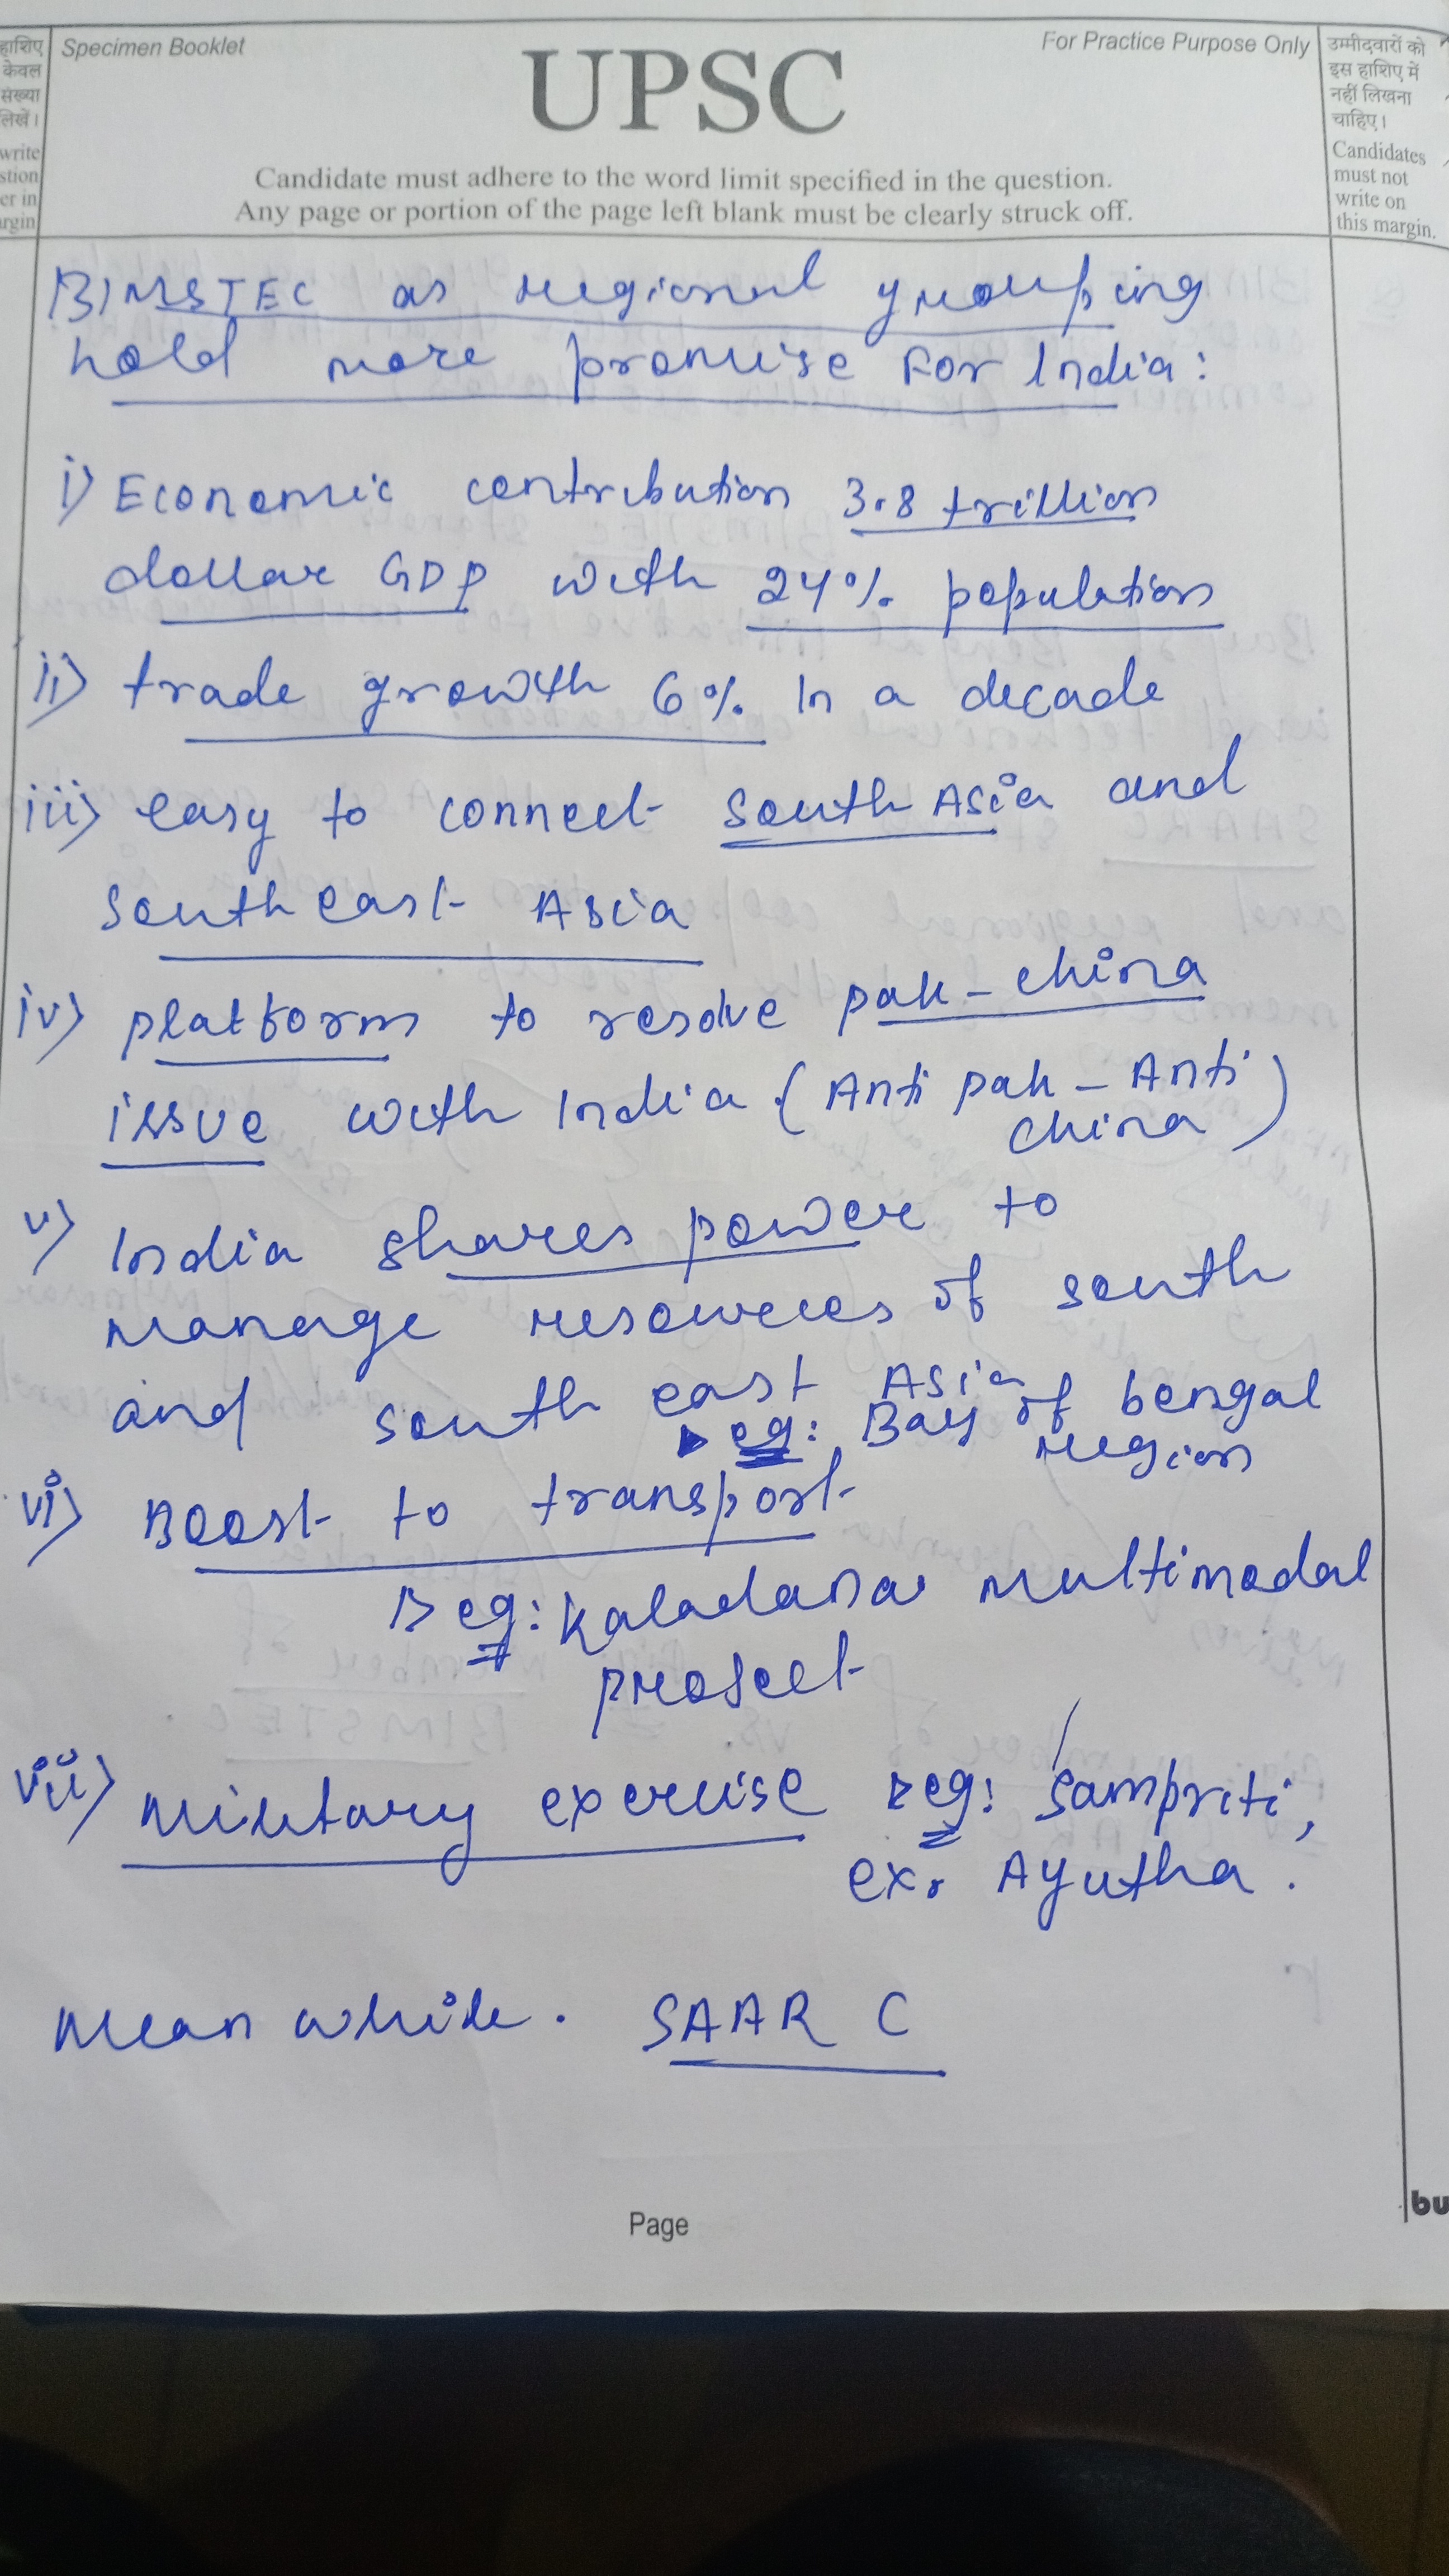 हाशिए
केवल
संख्या
लिखें।
write
stion
er in
argin
Specimen Booklet
For Practice Purpose Only
UPSC
Candidate must adhere to the word limit specified in the question.
Any page or portion of the page left blank must be clearly struck off.
उम्मीदवारों को
इस हाशिए में
नहीं लिखना
चाहिए।
Candidates
must not
write on
this margin.
BIMSTEC as regional grouping
hold more promise for India:
i) Economic contribution 3.8 trillion
dollar GDP with 24% population
ii) trade growth 6% in a decade
iii) easy to connect South Asia and
South east Asia
iv) platform to resolve pak-china
issue with India (Anti pak - Anti
china)
v) India shares power to
manage resources of south
and south east Asia
eg: Bay of bengal
region
vi) Boost to transport
eg: Kaladana multimodal
project
vii) military exercise eg: Sampriti,
ex. Ayutha.
Mean while. SAARC
Page
bu